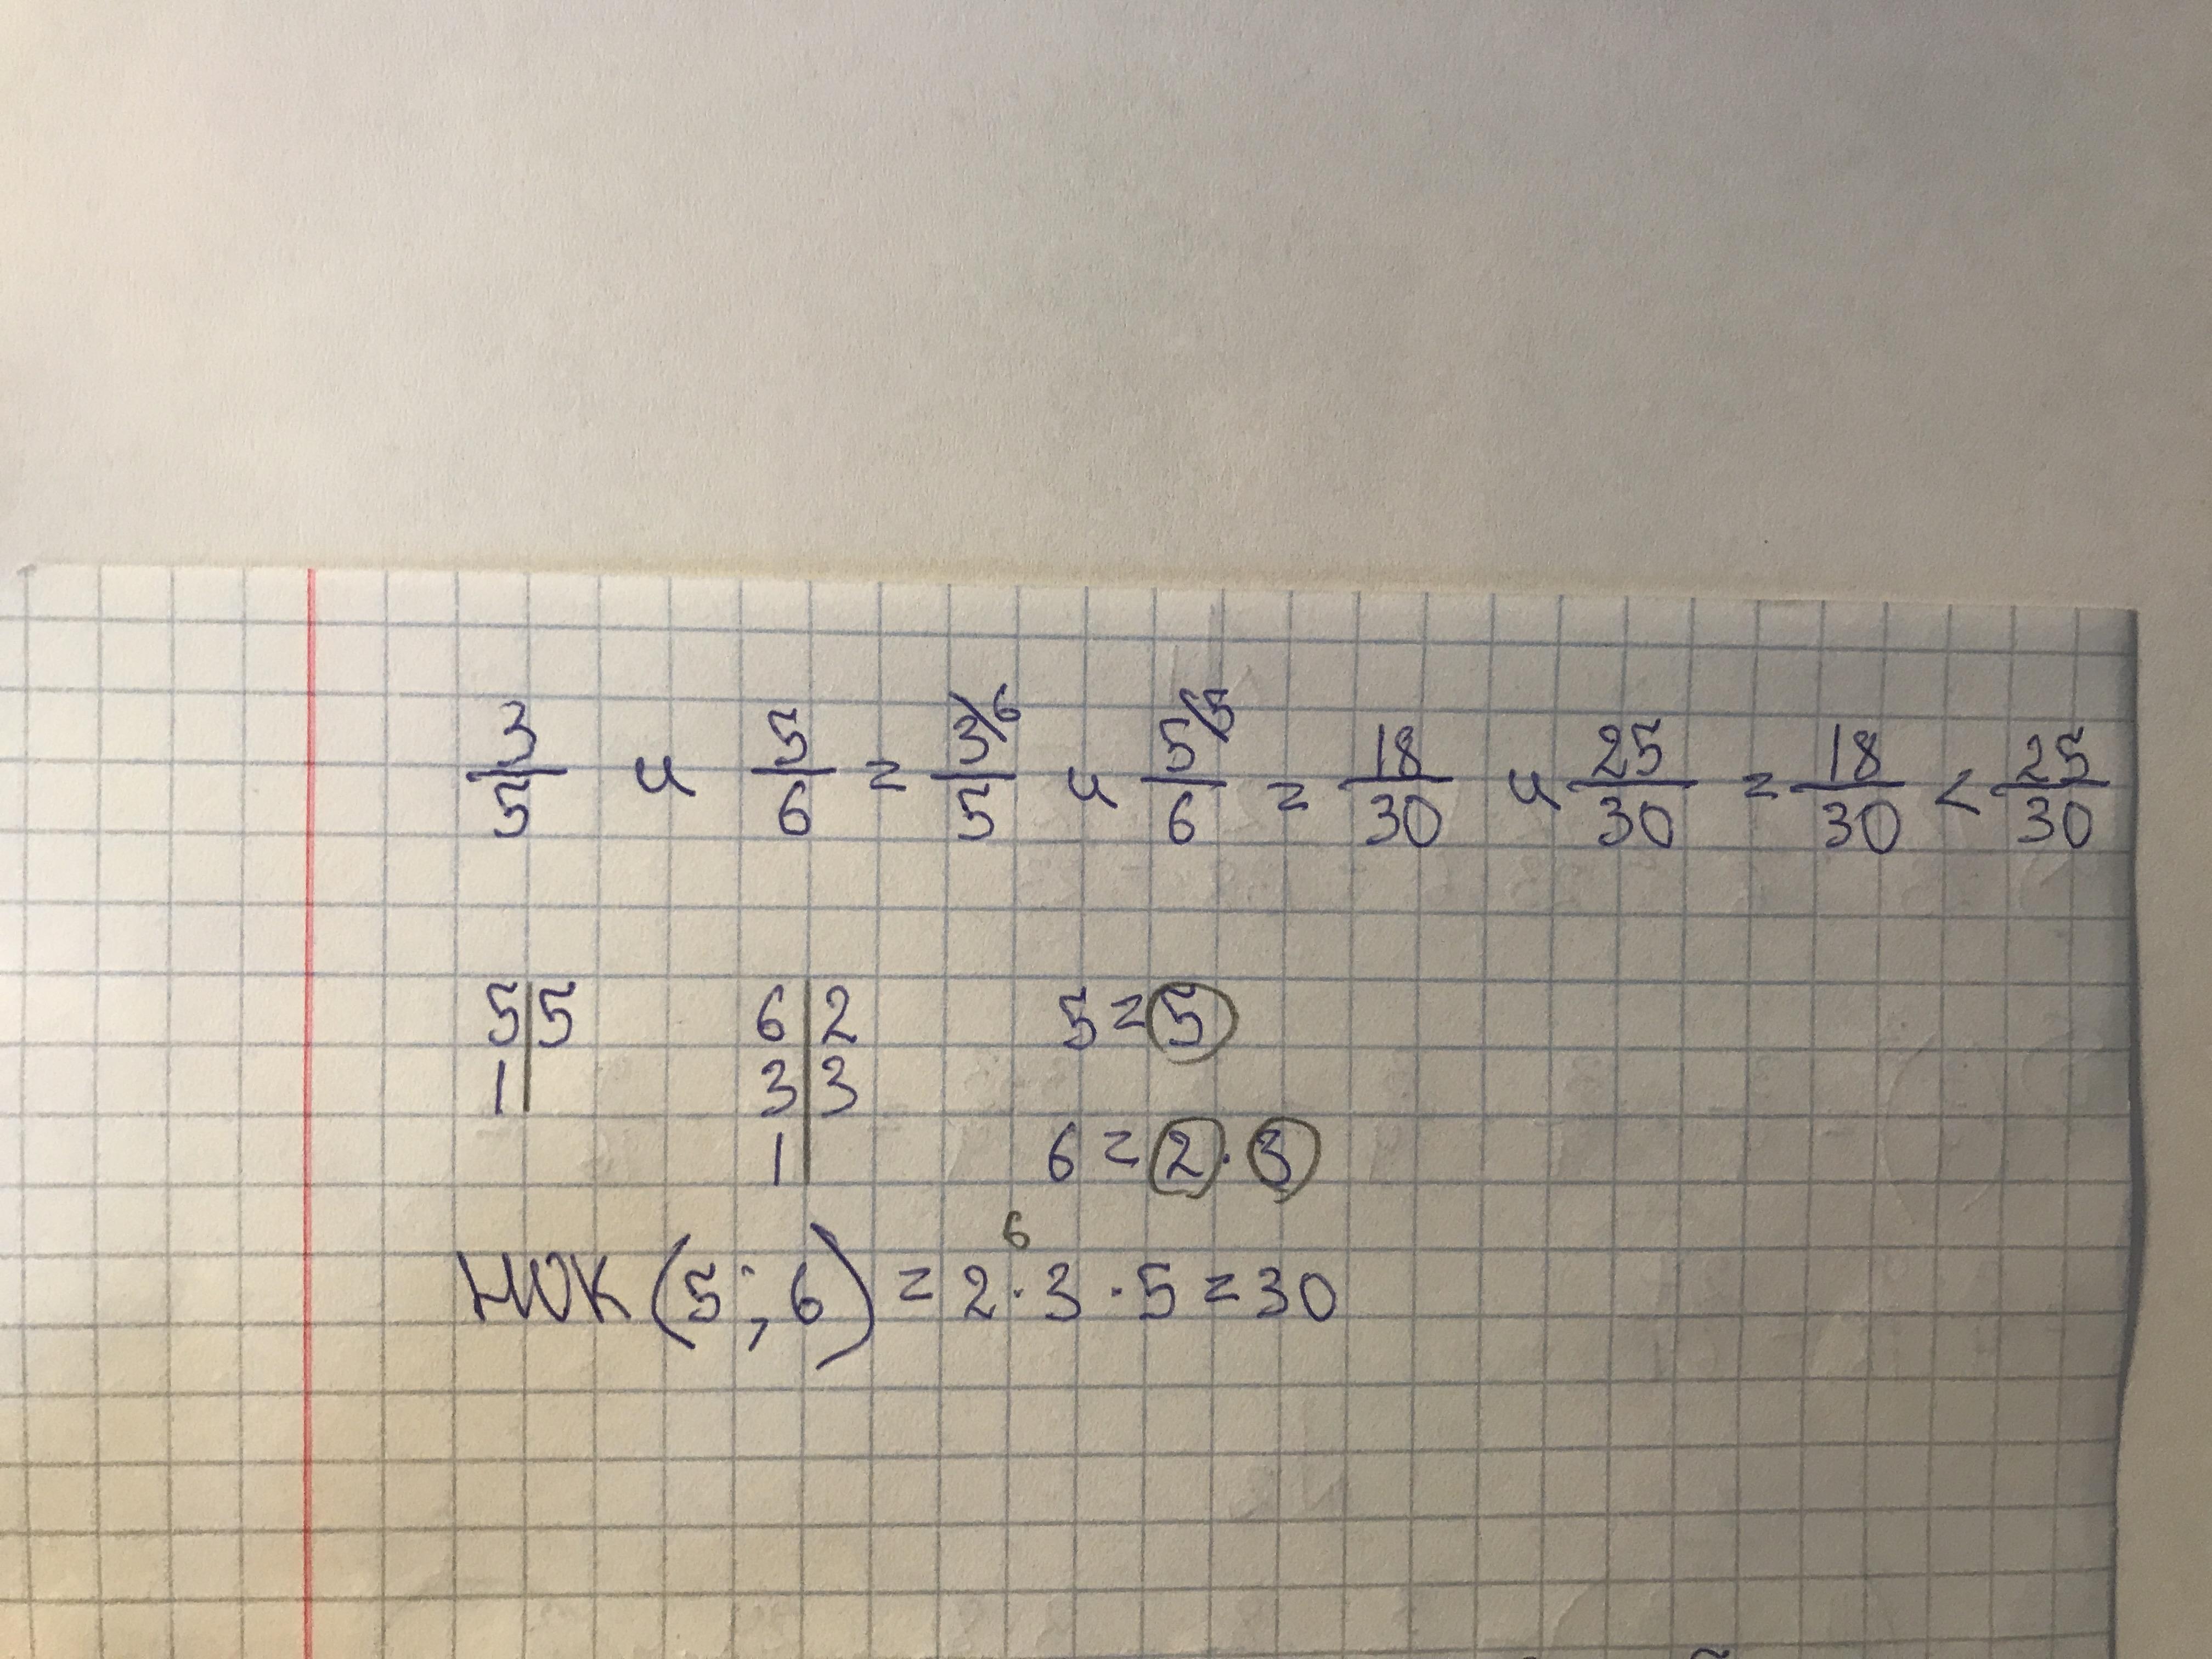 3/5 и 5/6 = 3/6/5 и 5/5/6 = 18/30 и 25/30 = 18/30 < 25/30
5|5 6|2 5=5
1| 3|3
1| 6=2·3
6
НОК(5;6)=2·3·5=30